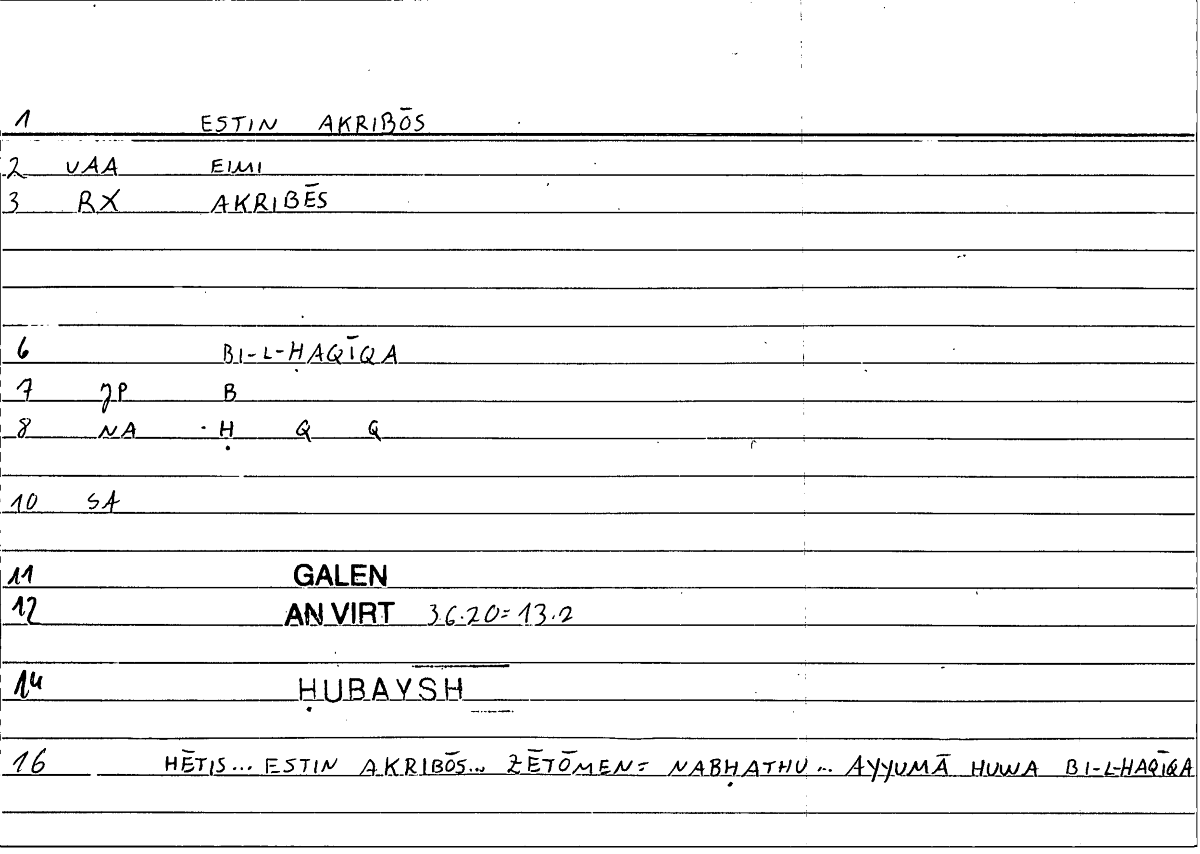 1 ESTIN AKRIBŌS
2 VAA EIMI
3 RX AKRIBĒS
6 BI-L-ḤAQĪQA
7 JP B
8 NA Ḥ Q Q
10 SA
11 GALEN
12 AN VIRT 36.20=13.2
14 ḤUBAYSH
16 HĒTIS... ESTIN AKRIBŌS... ZĒTŌMEN= NABḤATHU... AYYUMĀ HUWA BI-L-HAQĪQA